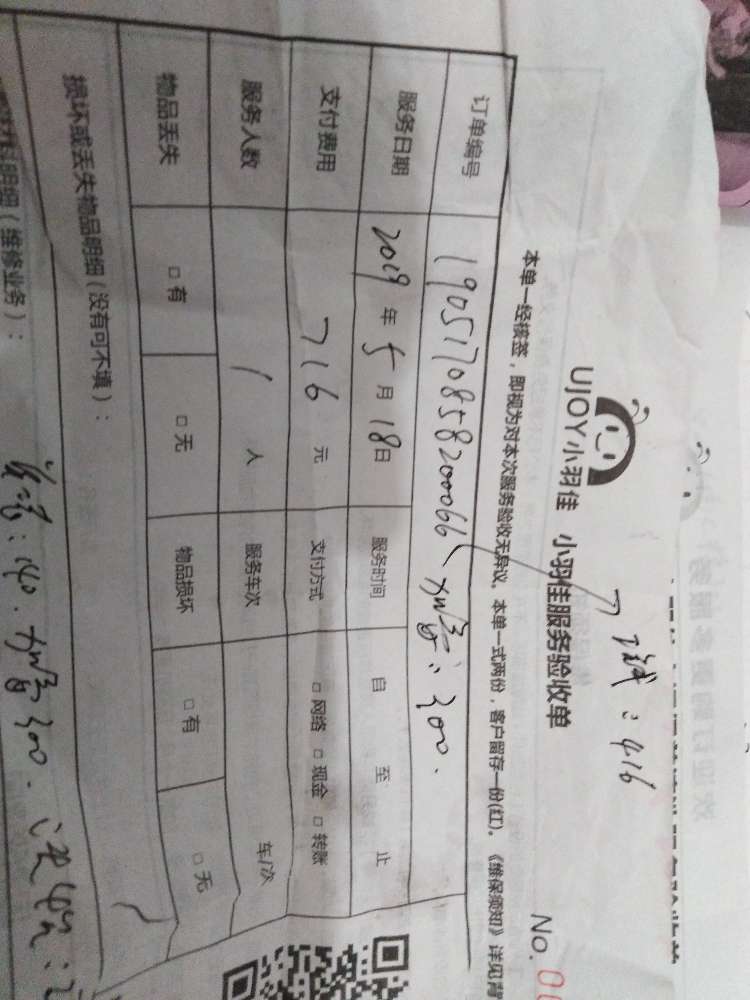 UJOY小羽佳 小羽佳服务验收单
No.
：416
本单一经核签，即视为对本次服务验收无异议。本单一式两份，客户留存一份(红)。《维保须知》详见背
订单编号 190517085820066 ：300.
服务日期 2019年5月18日 服务时间 自 至 止
支付费用 716元 支付方式 □网络 □现金 □转账
服务人数 1人 服务车次 车/次
物品丢失 □有 □无 物品损坏 □有 □无
损坏或丢失物品明细（没有可不填）：
明细（维修业务）：
：140. 300.